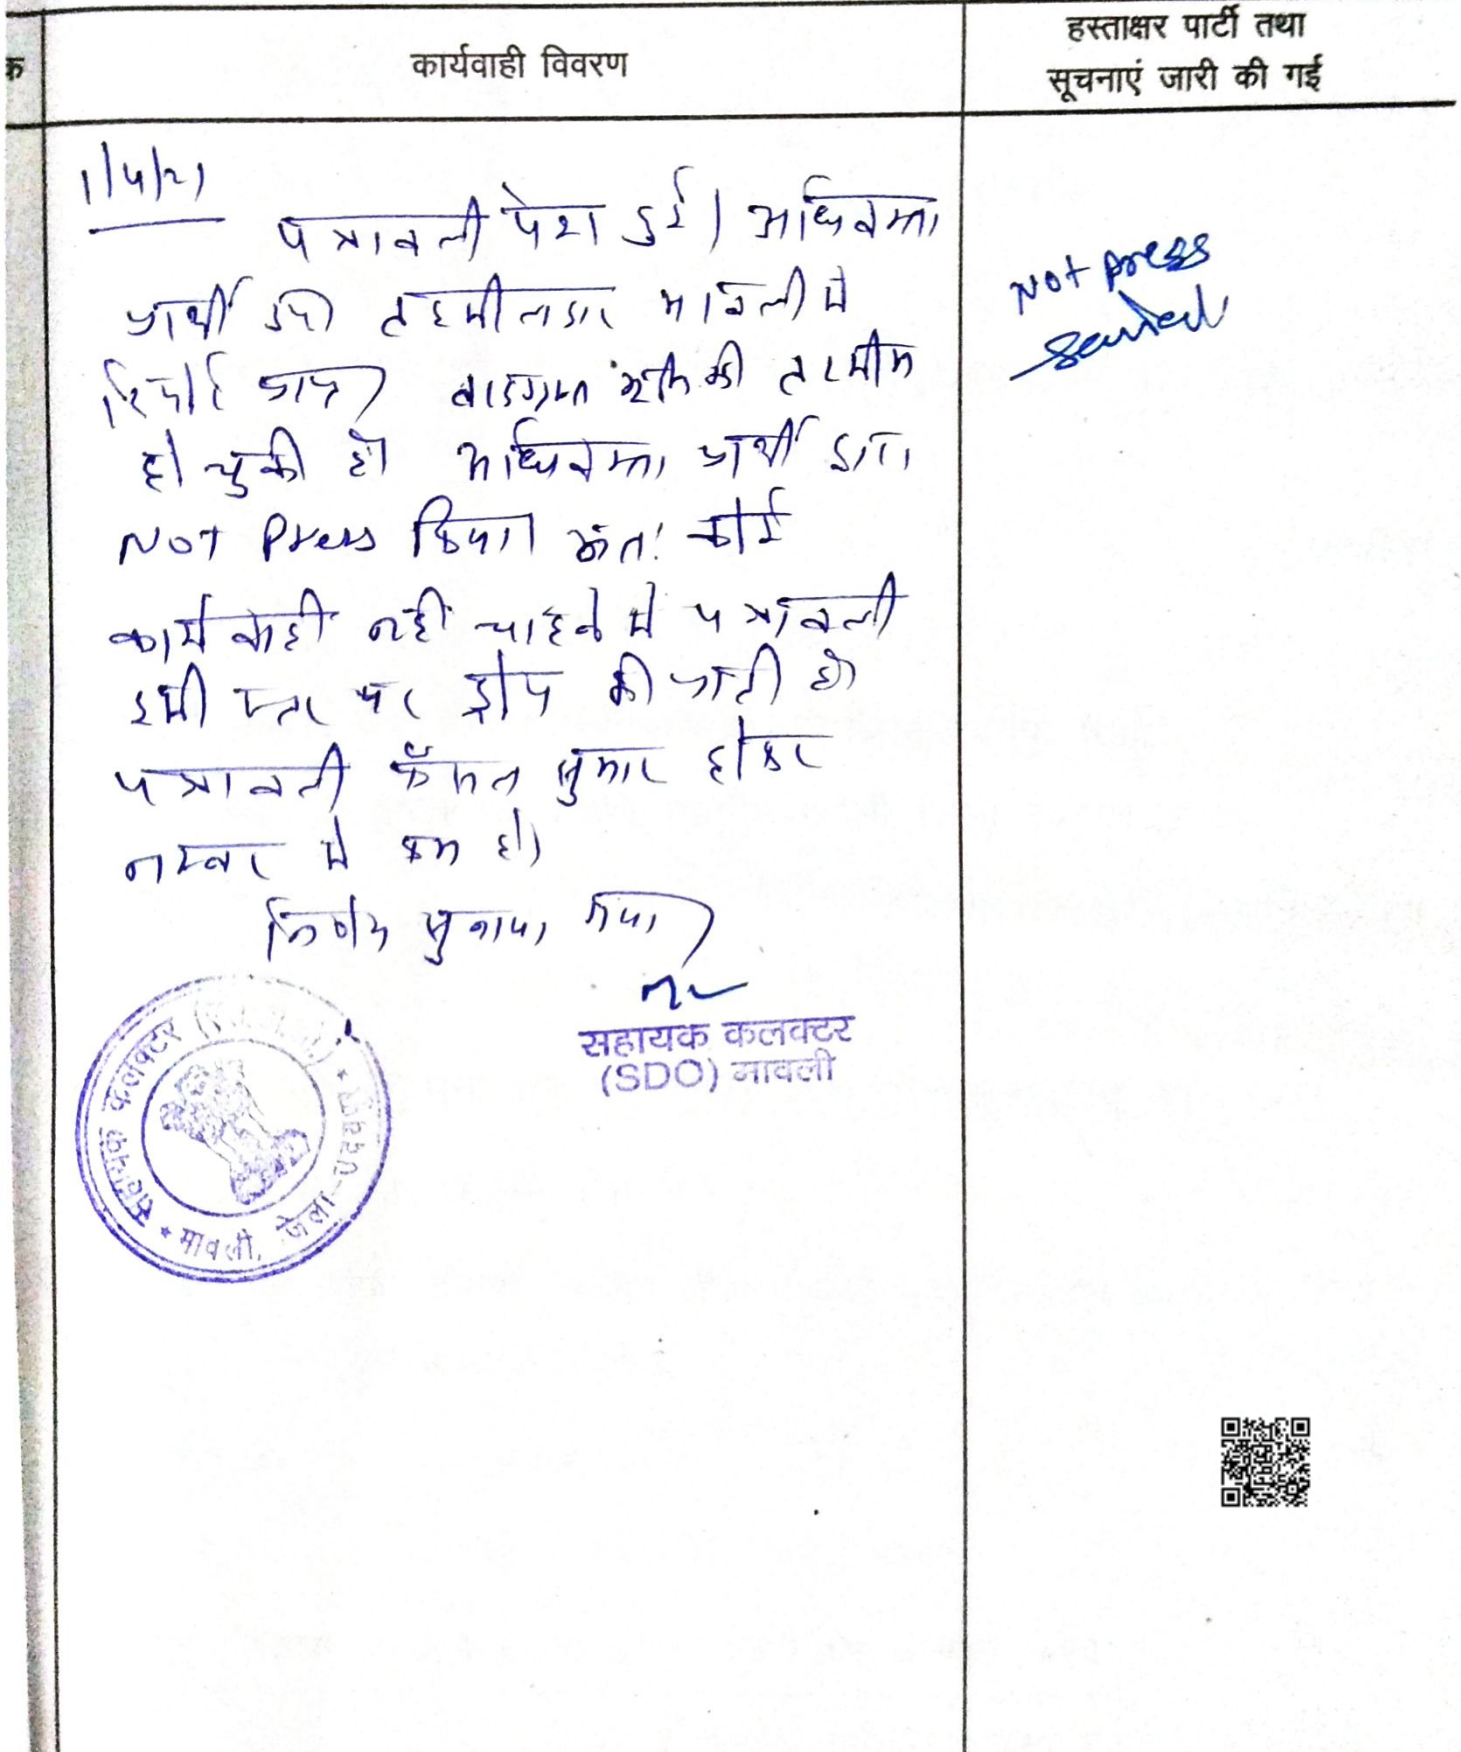 क
कार्यवाही विवरण
हस्ताक्षर पार्टी तथा
सूचनाएं जारी की गई
1/4/21
पत्रावली पेश हुई। अधिवक्ता
प्रार्थी उप० तहसीलदार मावली से
रिपोर्ट प्राप्त। वादग्रस्त भूमि की तरमीम
हो चुकी है। अधिवक्ता प्रार्थी द्वारा
NOT Press किया। अतः कोई
कार्यवाही नहीं चाहने से पत्रावली
इसी स्तर पर ड्रोप की जाती है।
पत्रावली फैसल सुमार होकर
नम्बर से कम हो।
निर्णय सुनाया गया।
Not press
सहायक कलक्टर
(SDO) मावली
सहायक कलक्टर
मावली, जिला-उदयपुर